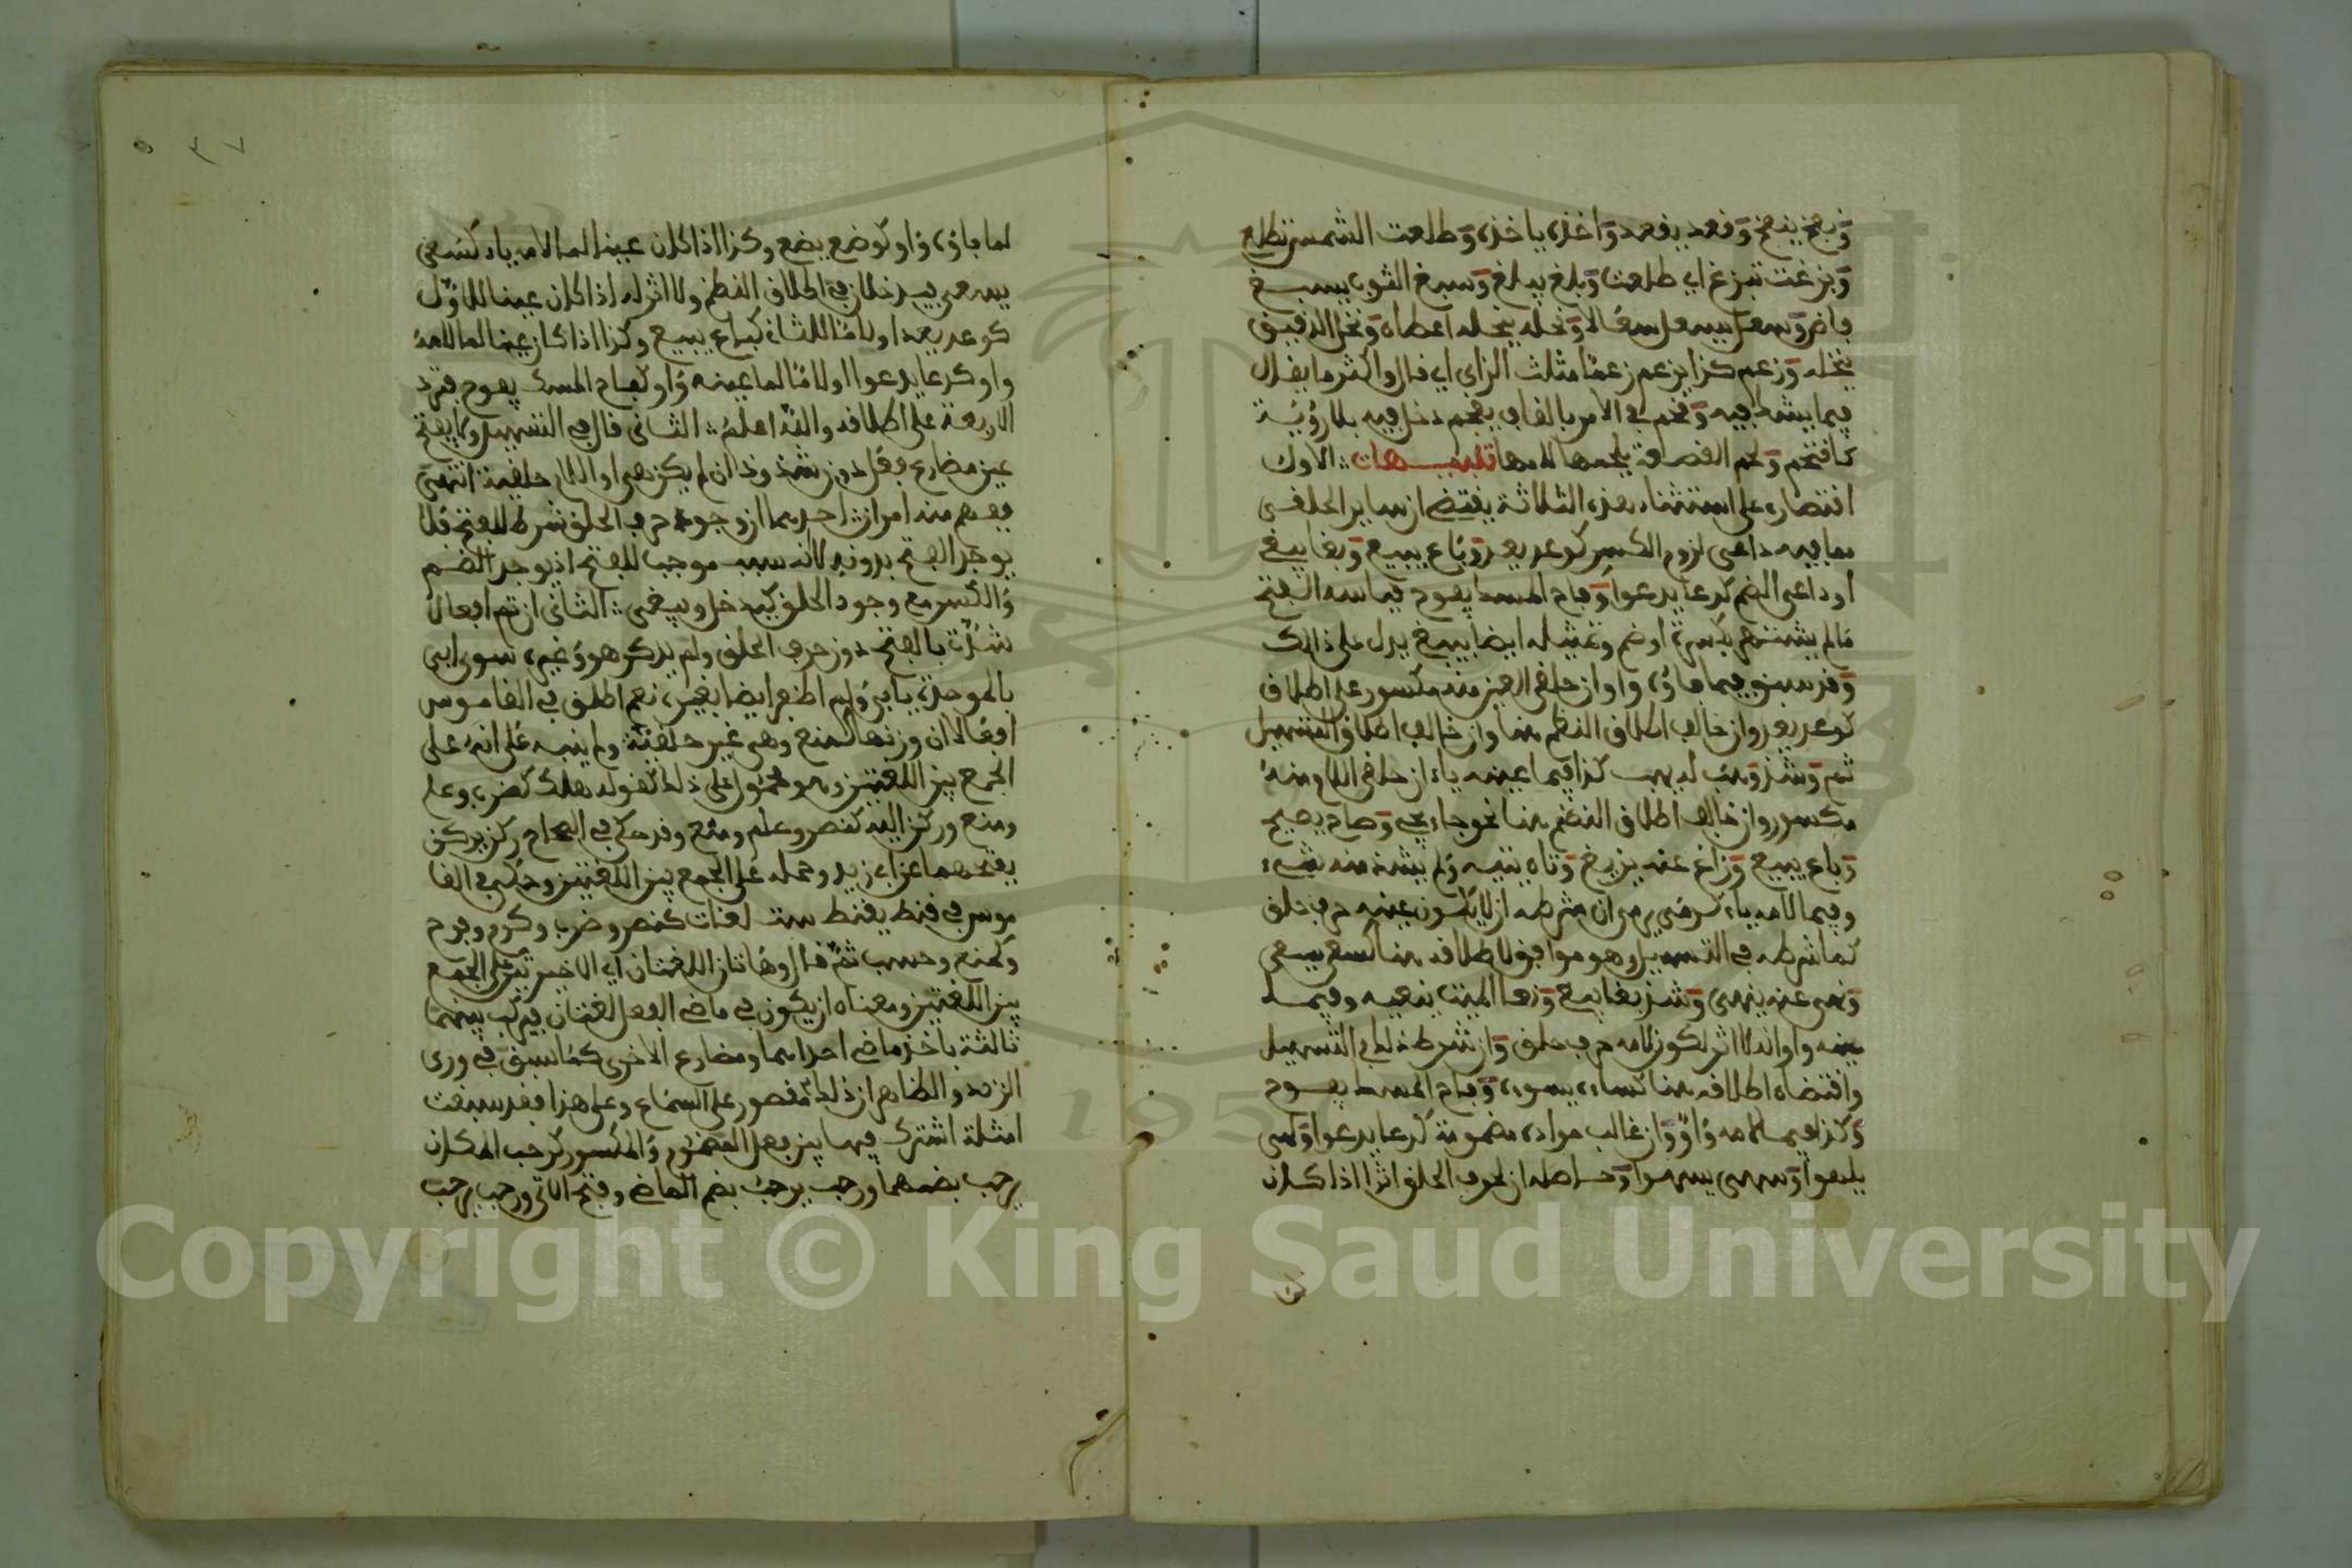 وبخع يبخع وفعد يفعد واخذه ياخذه وطلعت الشمس تطلع
وبزغت تبزغ اي طلعت وبلغ يبلغ وسبغ الثوب يسبغ
فاض وسعل يسعل سعالا ونحله ينحله اعطاه ونخل الدقيق
ينخله وزعم كذا يزعم زعما مثلث الزاي اي قال واكثر ما يقال
فيما يشك فيه وقحم في الامر بالقاف يقحم دخل فيه بلا رؤية
كاقتحم ولحم الفصمة يلحمها لامها تنبيهات الاول
اقتصاره على استثناء هذه الثلاثة يقتضي ان ساير الحلقي
مما فيه داعي لزوم الكسر كوعد يعد وباع يبيع وبغا يبغي
او داعي الضم كدعا يدعوا وفاح المسك يفوح قياسه الفتح
ما لم يشتهر بكسرة او ضم وتمثيله ايضا يبغي يدل على ذالك
وقد سبق فيما فاؤه واو ان حلقي العين منه مكسور على اطلاق
كوعد يعد وان خالف اطلاق النظم هنا وان خالف اطلاق التسهيل
ثم وشذ وهب له يهب كذا فيما عينه ياء ان حلقي اللام منه
مكسور وان خالف اطلاق النظم هنا نحو جاء يجيء وصاح يصيح
وباع يبيع وزاغ عنه يزيغ وتاه يتيه ولم يشذ منه شيء
وفيما لامه ياء كرمى يرمي ان شرطه ان لا يكون عينه حرف حلق
كما شرطه في التسهيل وهو موافق لاطلاقه هنا كسعى يسعى
ونهى عنه ينهى وشذ بغا يبغي ونعا الميت ينعيه وفيما
عينه واو انه لا اثر لكون لامه حرف حلق وان شرط ذلك في التسهيل
واقتضاه اطلاقه هنا كساءه يسوءه وفاح المسك يفوح
وكذا فيما لامه واو وان غالب مواده مضمومة كدعا يدعوا ولهى
يلهوا وسهى يسهوا وحاصله ان لحرف الحلق اثرا اذا كان
لما فاؤه واو كوضع يضع وكذا اذا كان عينا لما لامه ياء كسعى
يسعى فيدخلان في اطلاق النظم ولا اثر له اذا كان عينا للاول
كوعد يعد او لاما للثاني كباع يبيع وكذا اذا كان عينا لما لامه
واو كدعا يدعوا او لاما لما عينه واو كفاح المسك يفوح فترد
الاربعة على اطلاقه والله اعلم الثاني قال في التسهيل ولا يفتح
عين مضارع فعل دون شذوذ ان لم يكن هي او اللام حلقية انتهى
ففهم منه امران احدهما ان وجود حرف الحلق شرط للفتح فلا
يوجد الفتح بدونه لا انه سبب موجب للفتح اذ يوجد الضم
والكسر مع وجود الحلق كيدخل ويبغي الثاني ان ثم افعالا
شذت بالفتح دون حرف الحلق ولم يذكر هو وغيره سوى ابى
بالموحدة يابى ولم اظفر ايضا بغيره نعم اطلق في القاموس
افعالا ان وزنها كمنع وهي غير حلقية ولم ينبه على انه على
الجمع بين اللغتين وهو محمول على ذلك كقوله هلك كضرب وعلم
ومنع وركن اليه كنصر وعلم ومنع وقد حكى في الصحاح ركن يركن
بفتحهما عن ابي زيد وحمله على الجمع بين اللغتين وحكى في القا
موس في قنط يقنط ست لغات كنصر وضرب وكرم وفرح
وكمنع وحسب ثم قال وهاتان اللغتان اي الاخيرتين على الجمع
بين اللغتين ومعناه ان يكون في ماضي الفعل لغتان فيركب بينهما
ثالثة باخذ ماضي احداهما ومضارع الاخرى كما سبق في ورى
الزند والظاهر ان ذلك مقصور على السماع وعلى هذا فقد سبقت
امثلة اشترك فيها بين فعل المضموم والمكسور كرحب المكان
يرحب بضمهما ورحب يرحب بضم الماضي وفتح الآتي ورحب يرحب
Copyright © King Saud University
195